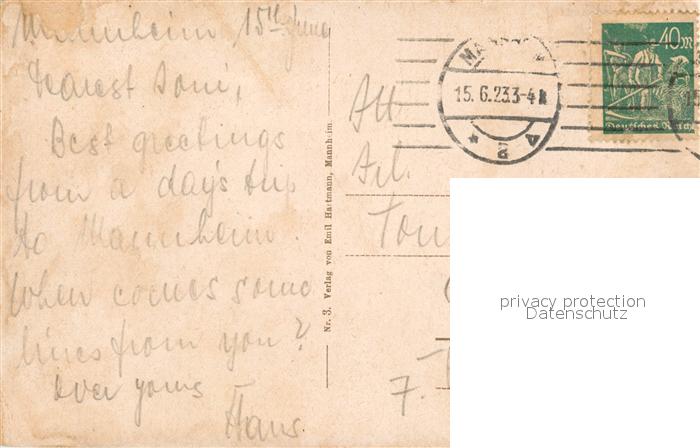 Mannheim 15th June
Dearest Toni,
Best greetings
from a day's trip
to Mannheim.
When comes some
lines from you?
Ever yours
Hans.
Nr. 3. Verlag von Emil Hartmann, Mannheim.
15.6.23.3-4
40M
Deutsches Reich
Frl.
7.
privacy protection
Datenschutz